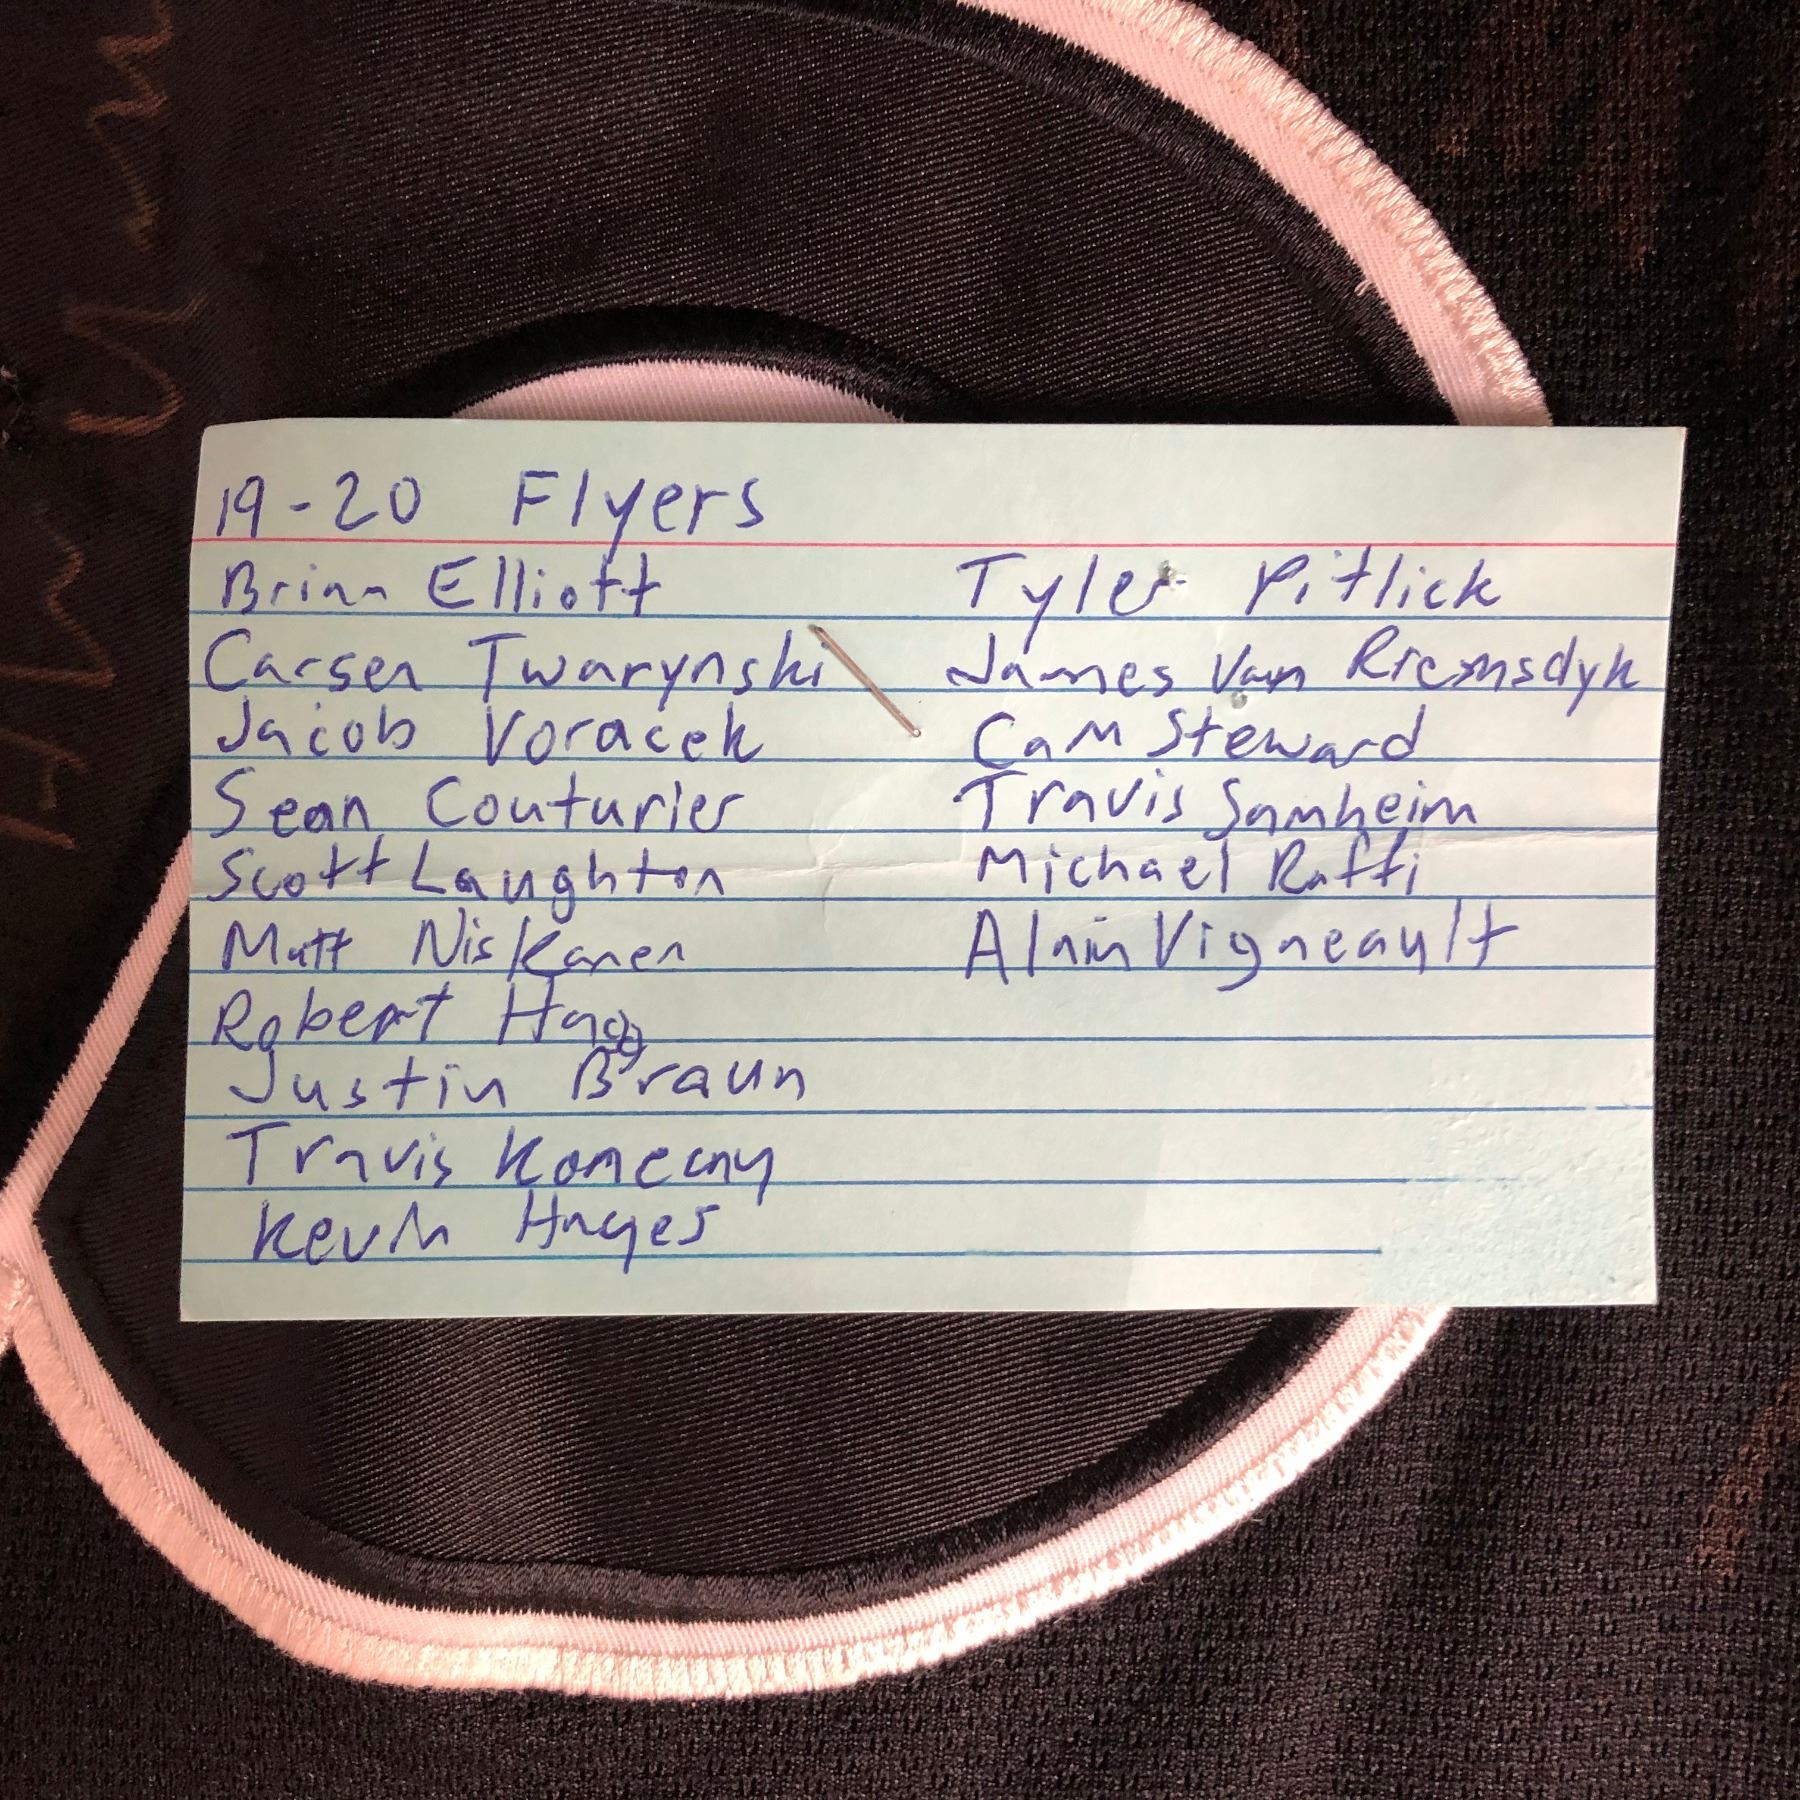 19-20 Flyers
Brian Elliott
Carsen Twarynski
Jacob Voracek
Sean Couturier
Scott Laughton
Matt Niskanen
Robert Hagg
Justin Braun
Travis Konecny
Kevin Hayes
Tyler Pitlick
James Van Riemsdyk
Cam Steward
Travis Samheim
Michael Raffi
Alain Vigneault